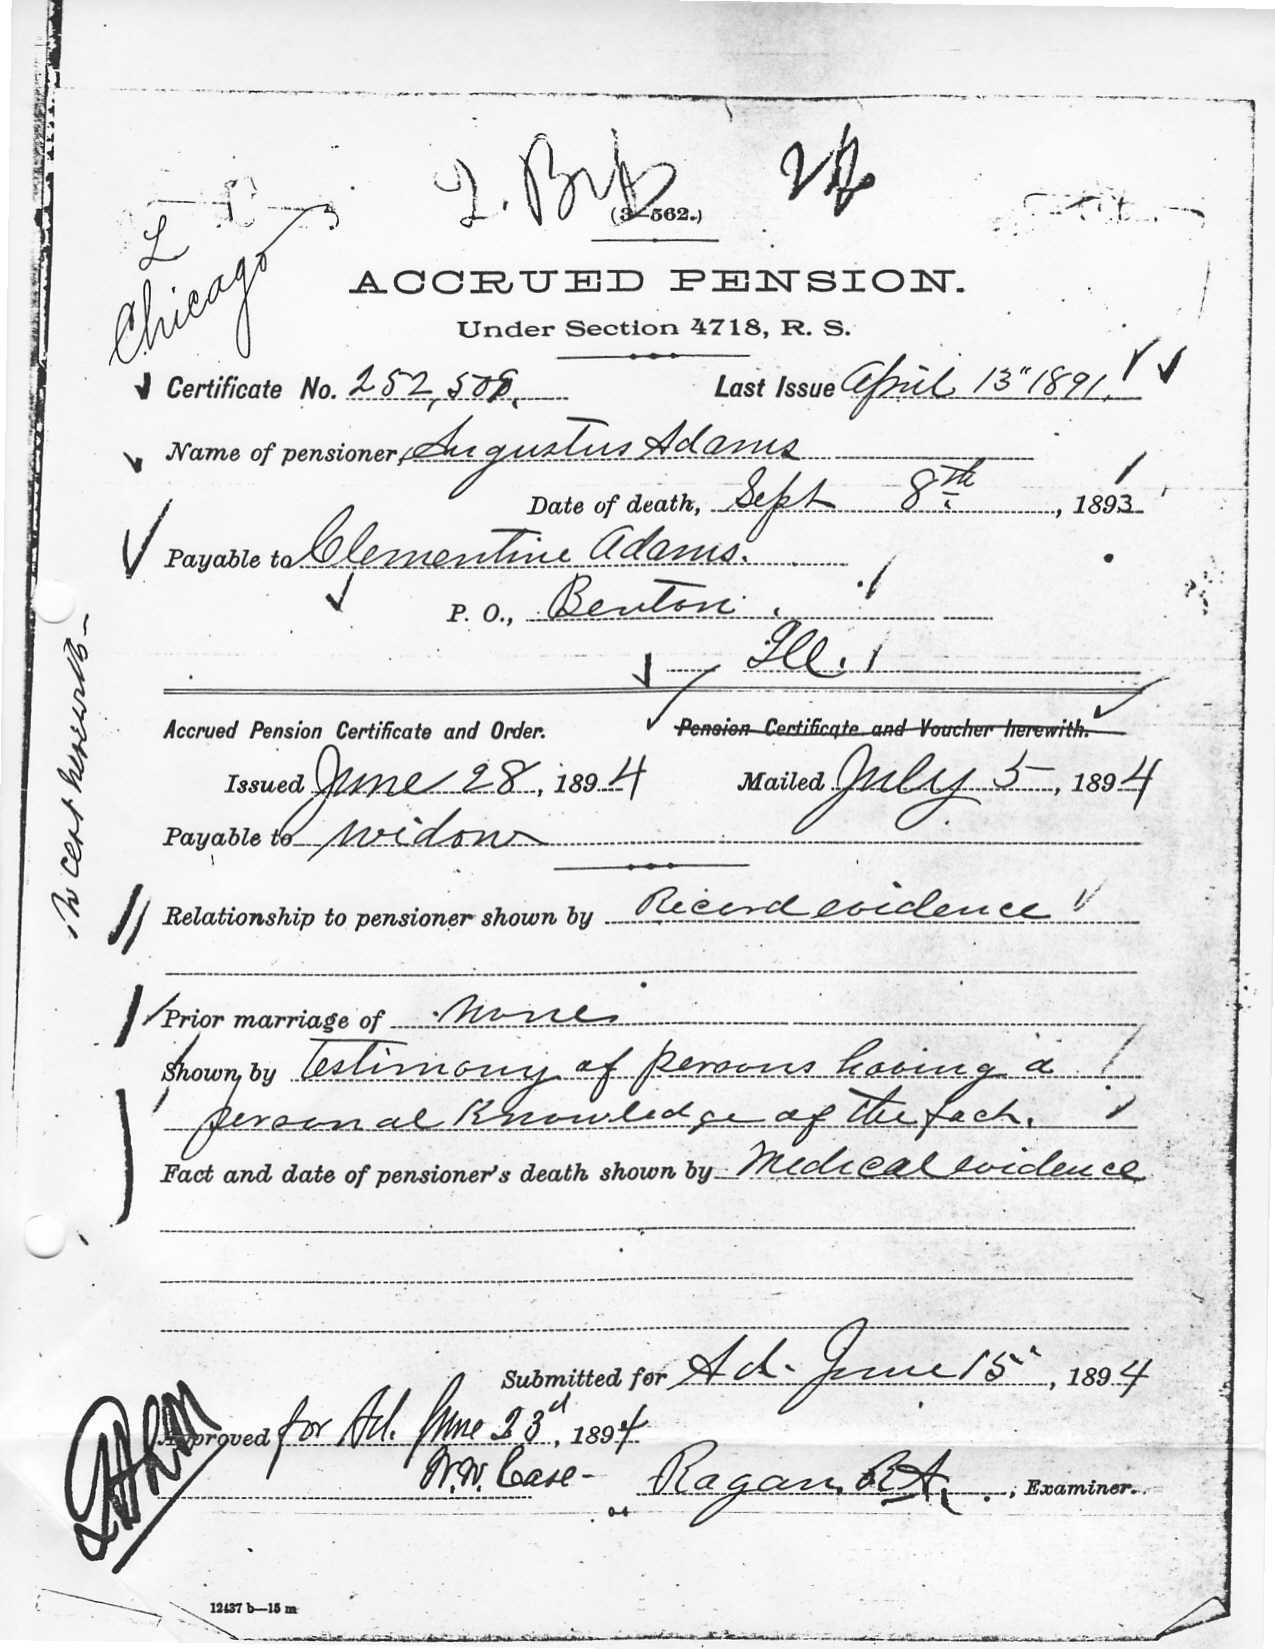 (3—562.)
L
Chicago
ACCRUED PENSION.
Under Section 4718, R. S.
Certificate No. Last Issue April 13" 1891.
Name of pensioner, Augustus Adams
Date of death, Sept 8th, 1893
Payable to Clementine Adams.
P. O., Benton.
Ill.
Accrued Pension Certificate and Order. Pension Certificate and Voucher herewith.
Issued June 28, 1894 Mailed July 5, 1894
Payable to widow
Relationship to pensioner shown by Record evidence
Prior marriage of none
Shown by testimony of persons having a
personal knowledge of the fact.
Fact and date of pensioner's death shown by Medical evidence
cert herewith
Submitted for Ad. June 15", 1894
Approved for Ad. June 23d, 1894
W.W. Case Ragan, R.A., Examiner.
12437 b—15 m